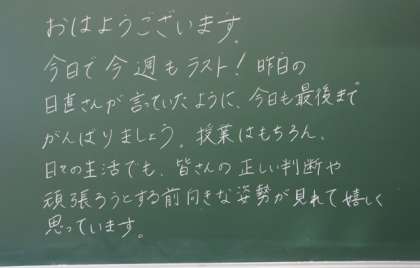 おはようございます。
今日で今週もラスト！昨日の
日直さんが言っていたように、今日も最後まで
がんばりましょう。授業はもちろん、
日々の生活でも、皆さんの正しい判断や
頑張ろうとする前向きな姿勢が見れて嬉しく
思っています。